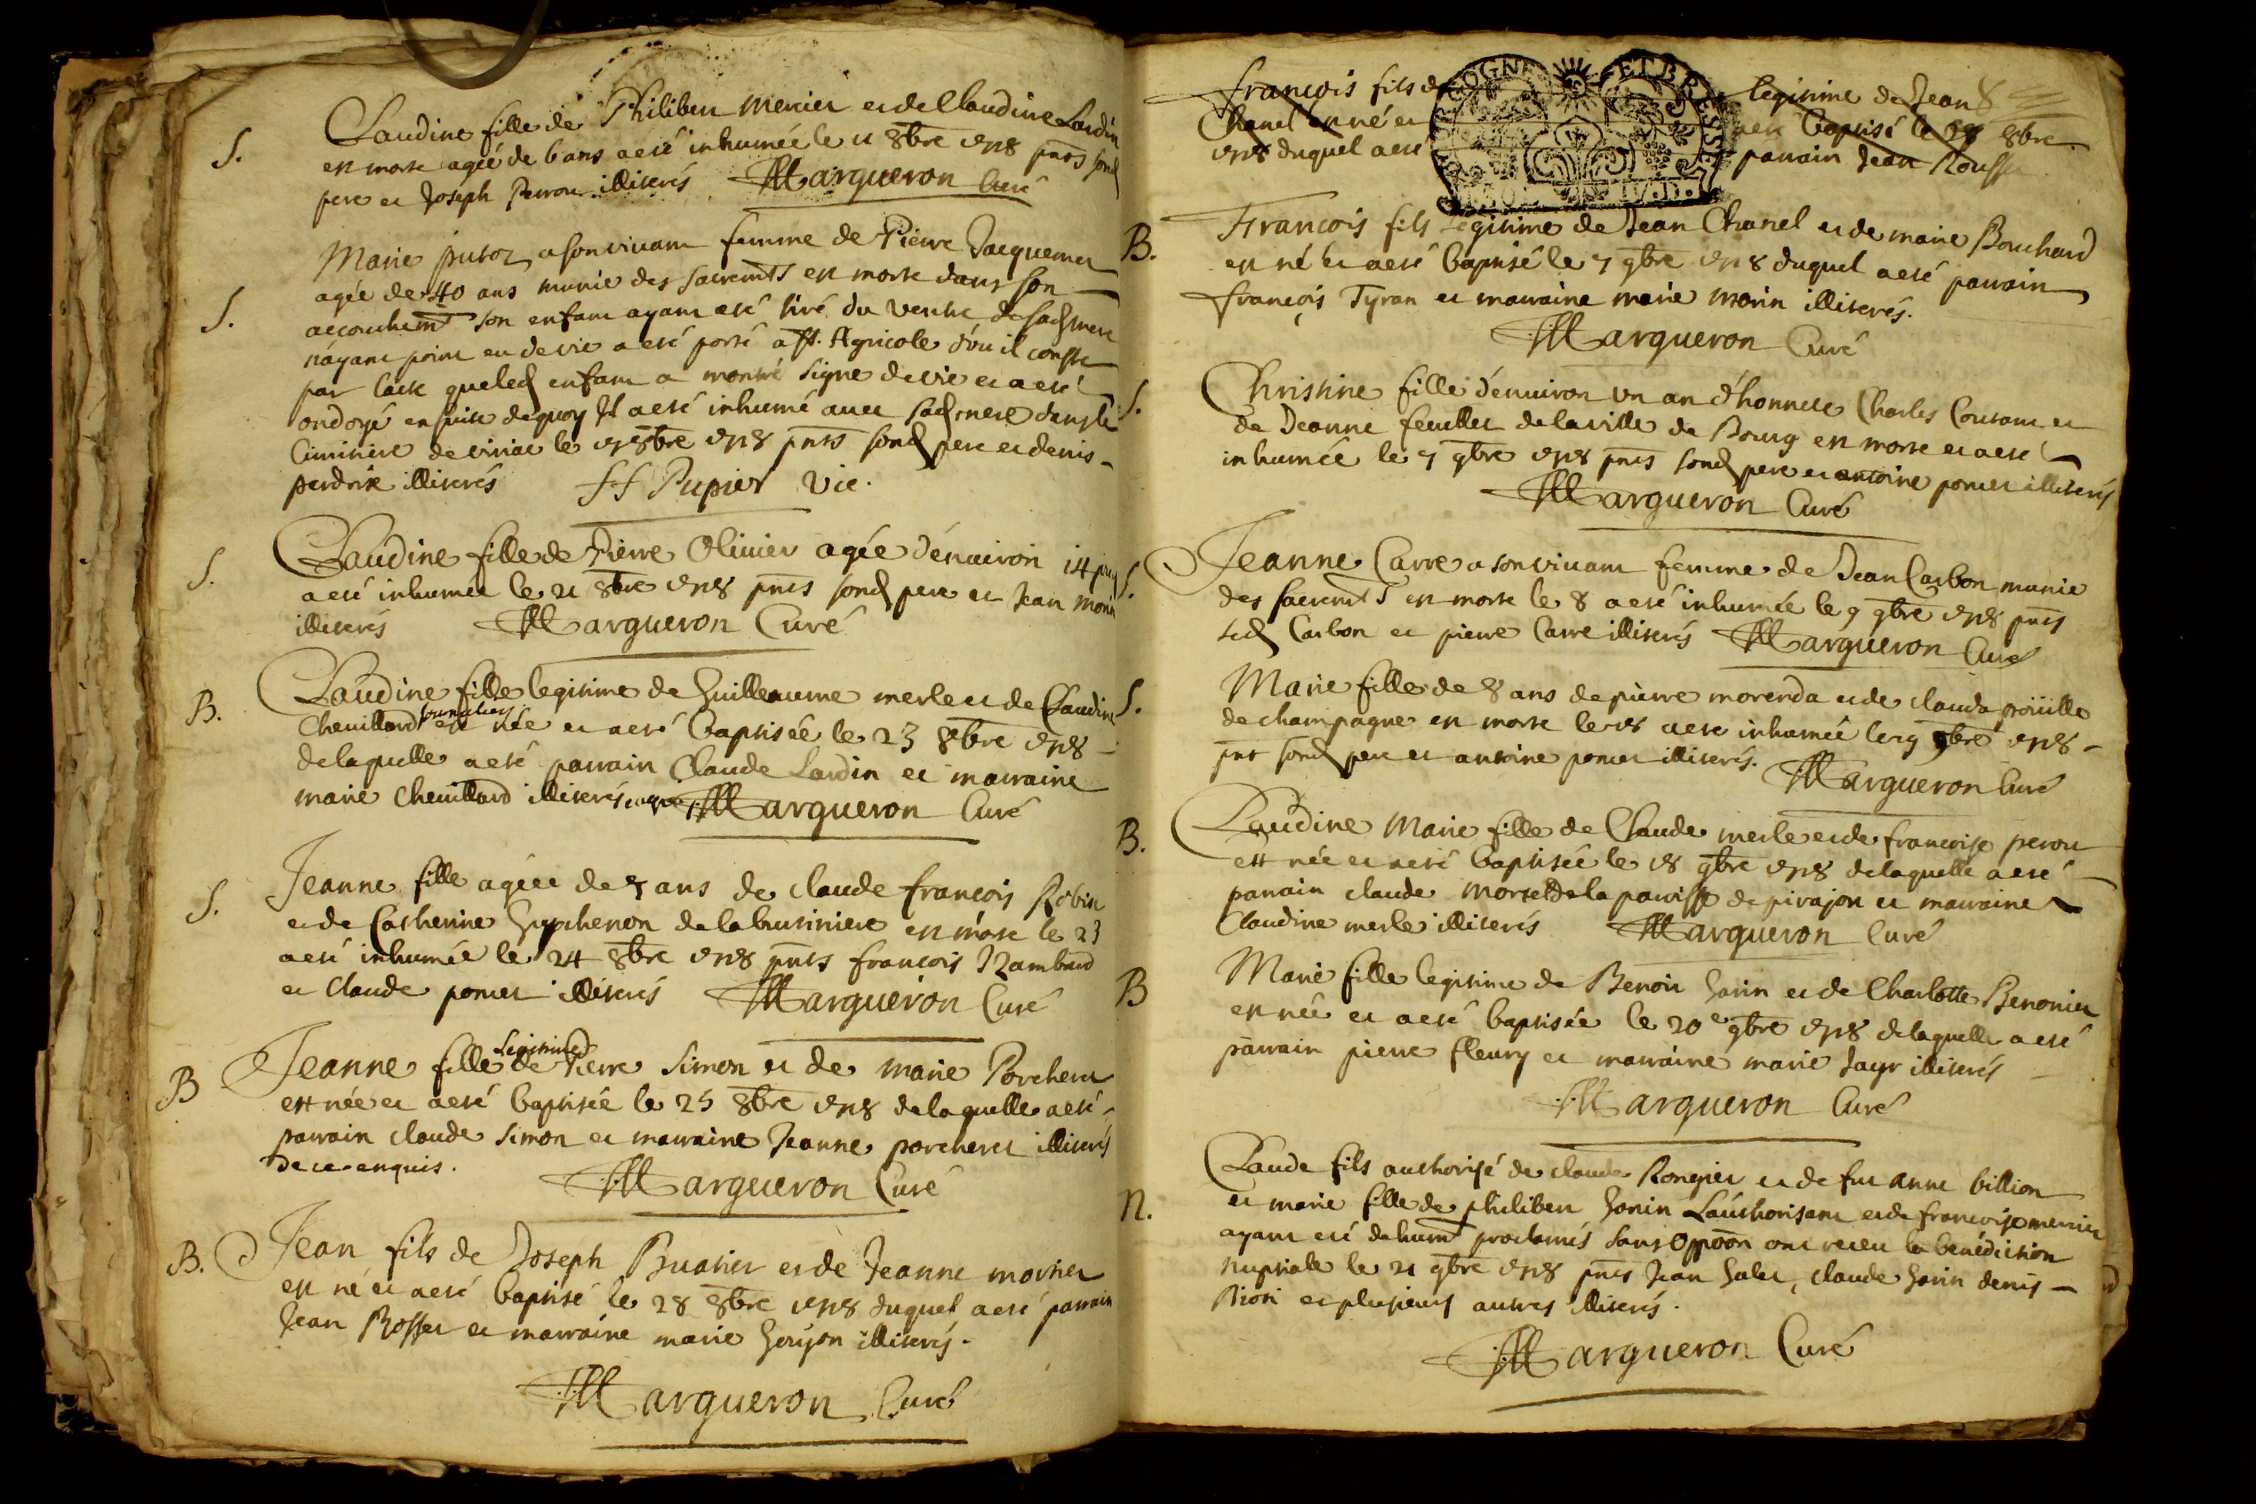 S.
Claudine fille de Philibert Mercier et de Claudine Lardin
est morte agée de 6 ans a eté inhumée le 11 8bre 1718 pnts sond
pere et Joseph Perrou illiterés Margueron Curé
S.
Marie putoz a son vivant femme de Pierre Jacquemet
agée de 40 ans munie des sacremts est morte dans son
accouchemt son enfant ayant eté tiré du ventre de sad mere
n'ayant point eu de vie a eté porté a St. Agricole d'ou il conste
par l'acte que led enfant a montré signe de vie et a eté
ondoyé en suite de quoy Il a eté inhumé avec sad mere dans le
Cimitiere de viriat le 15 8bre 1718 pnts sond pere et denis
perdrix illiterés ff Pupier Vic.
S.
Claudine fille de Pierre Olivier agée d'environ 14
a eté inhumée le 21 8bre 1718 pnts sond pere et Jean Morin
illiterés Margueron Curé
B.
Claudine fille legitime de Guillaume merle et de Claudine
Chevillard est née et a eté baptisée le 23 8bre 1718
de laquelle a eté parrain Claude Lardin et marraine
marie Chevillard illiterés Margueron Curé
S.
Jeanne fille agée de 5 ans de claude françois Robin
et de Catherine de la est morte le 23
a eté inhumée le 24 8bre 1718 pnts françois Rambaud
et Claude poncet illiterés Margueron Curé
B
Jeanne fille legitime de Pierre Simon et de marie Porcheret
est née et a eté baptisée le 25 8bre 1718 de laquelle a eté
parrain claude Simon et marraine Jeanne porcheret illiterés
de ce enquis. Margueron Curé
B.
Jean fils de Joseph Buatier et de Jeanne mornet
est né et a eté baptisé le 28 8bre 1718 duquel a eté parrain
Jean Rosset et marraine marie Goujon illiterés.
Margueron Curé
françois fils de legitime de Jean
Chanel est né et a eté baptisé le 8bre
1718 duquel a eté parrain Jean Rousset
B.
François fils legitime de Jean Chanel et de marie Bouchard
est né et a eté baptisé le 7 9bre 1718 duquel a eté parrain
françois Tyran et marraine marie morin illiterés.
Margueron Curé
S.
Christine fille d'environ un an d'honnete Charles Coutant et
de Jeanne feuillet de la ville de Bourg est morte et a eté
inhumée le 7 9bre 1718 pnts sond pere et antoine poncet illiterés
Margueron Curé
S.
Jeanne Carre a son vivant femme de Jean Carbon munie
des sacremts est morte le 8 a eté inhumée le 9 9bre 1718 pnts
led Carbon et pierre Carre illiterés Margueron Curé
S.
Marie fille de 8 ans de pierre morenda et de clauda
de champagne est morte le 18 a eté inhumée le 19 9bre 1718
pnt sond pere et antoine poncet illiterés. Margueron Curé
B.
Claudine Marie fille de Claude merle et de françoise perou
est née et a eté baptisée le 18 9bre 1718 de laquelle a eté
parrain claude morsel de la paroisse de pirajou et marraine
Claudine merle illiterés Margueron Curé
B
Marie fille legitime de Benoit Gonin et de Charlotte Benonier
est née et a eté baptisée le 20e 9bre 1718 de laquelle a eté
parrain pierre fleury et marraine marie Jayr illiterés
Margueron Curé
N.
Claude fils authorisé de claude Rongier et de fut anne billion
et marie fille de philibert Gonin L'authorisant et de françoise mercier
ayant eté dehumt proclamés sans Oppoon ont receu la benediction
nuptiale le 21 9bre 1718 pnts Jean Galet, claude Gonin denis
Pioti et plusieurs autres illiterés.
Margueron Curé